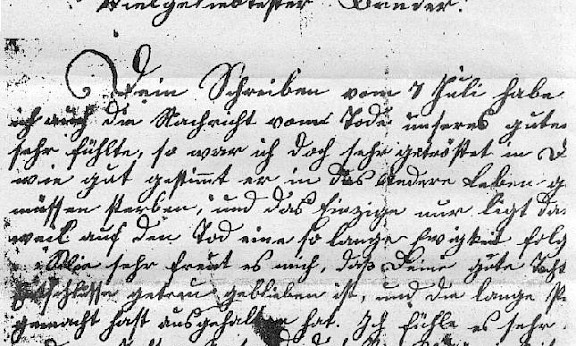 Vielgeliebtester Bruder!
Dein Schreiben vom 7 Juli habe
ich auch die Nachricht vom Tode unseres guten
sehr fühlte, so war ich doch sehr getröstet in
wie gut gestimmt er in das andere Leben g
müssen sterben, und das Einzige nur liegt da
weil auf den Tod eine so lange Ewigkeit folg
sehr freut es mich, daß Deine gute Toch
getreu geblieben ist, und die lange
gemacht hast ausgehalten hat. Ich fühle es sehr